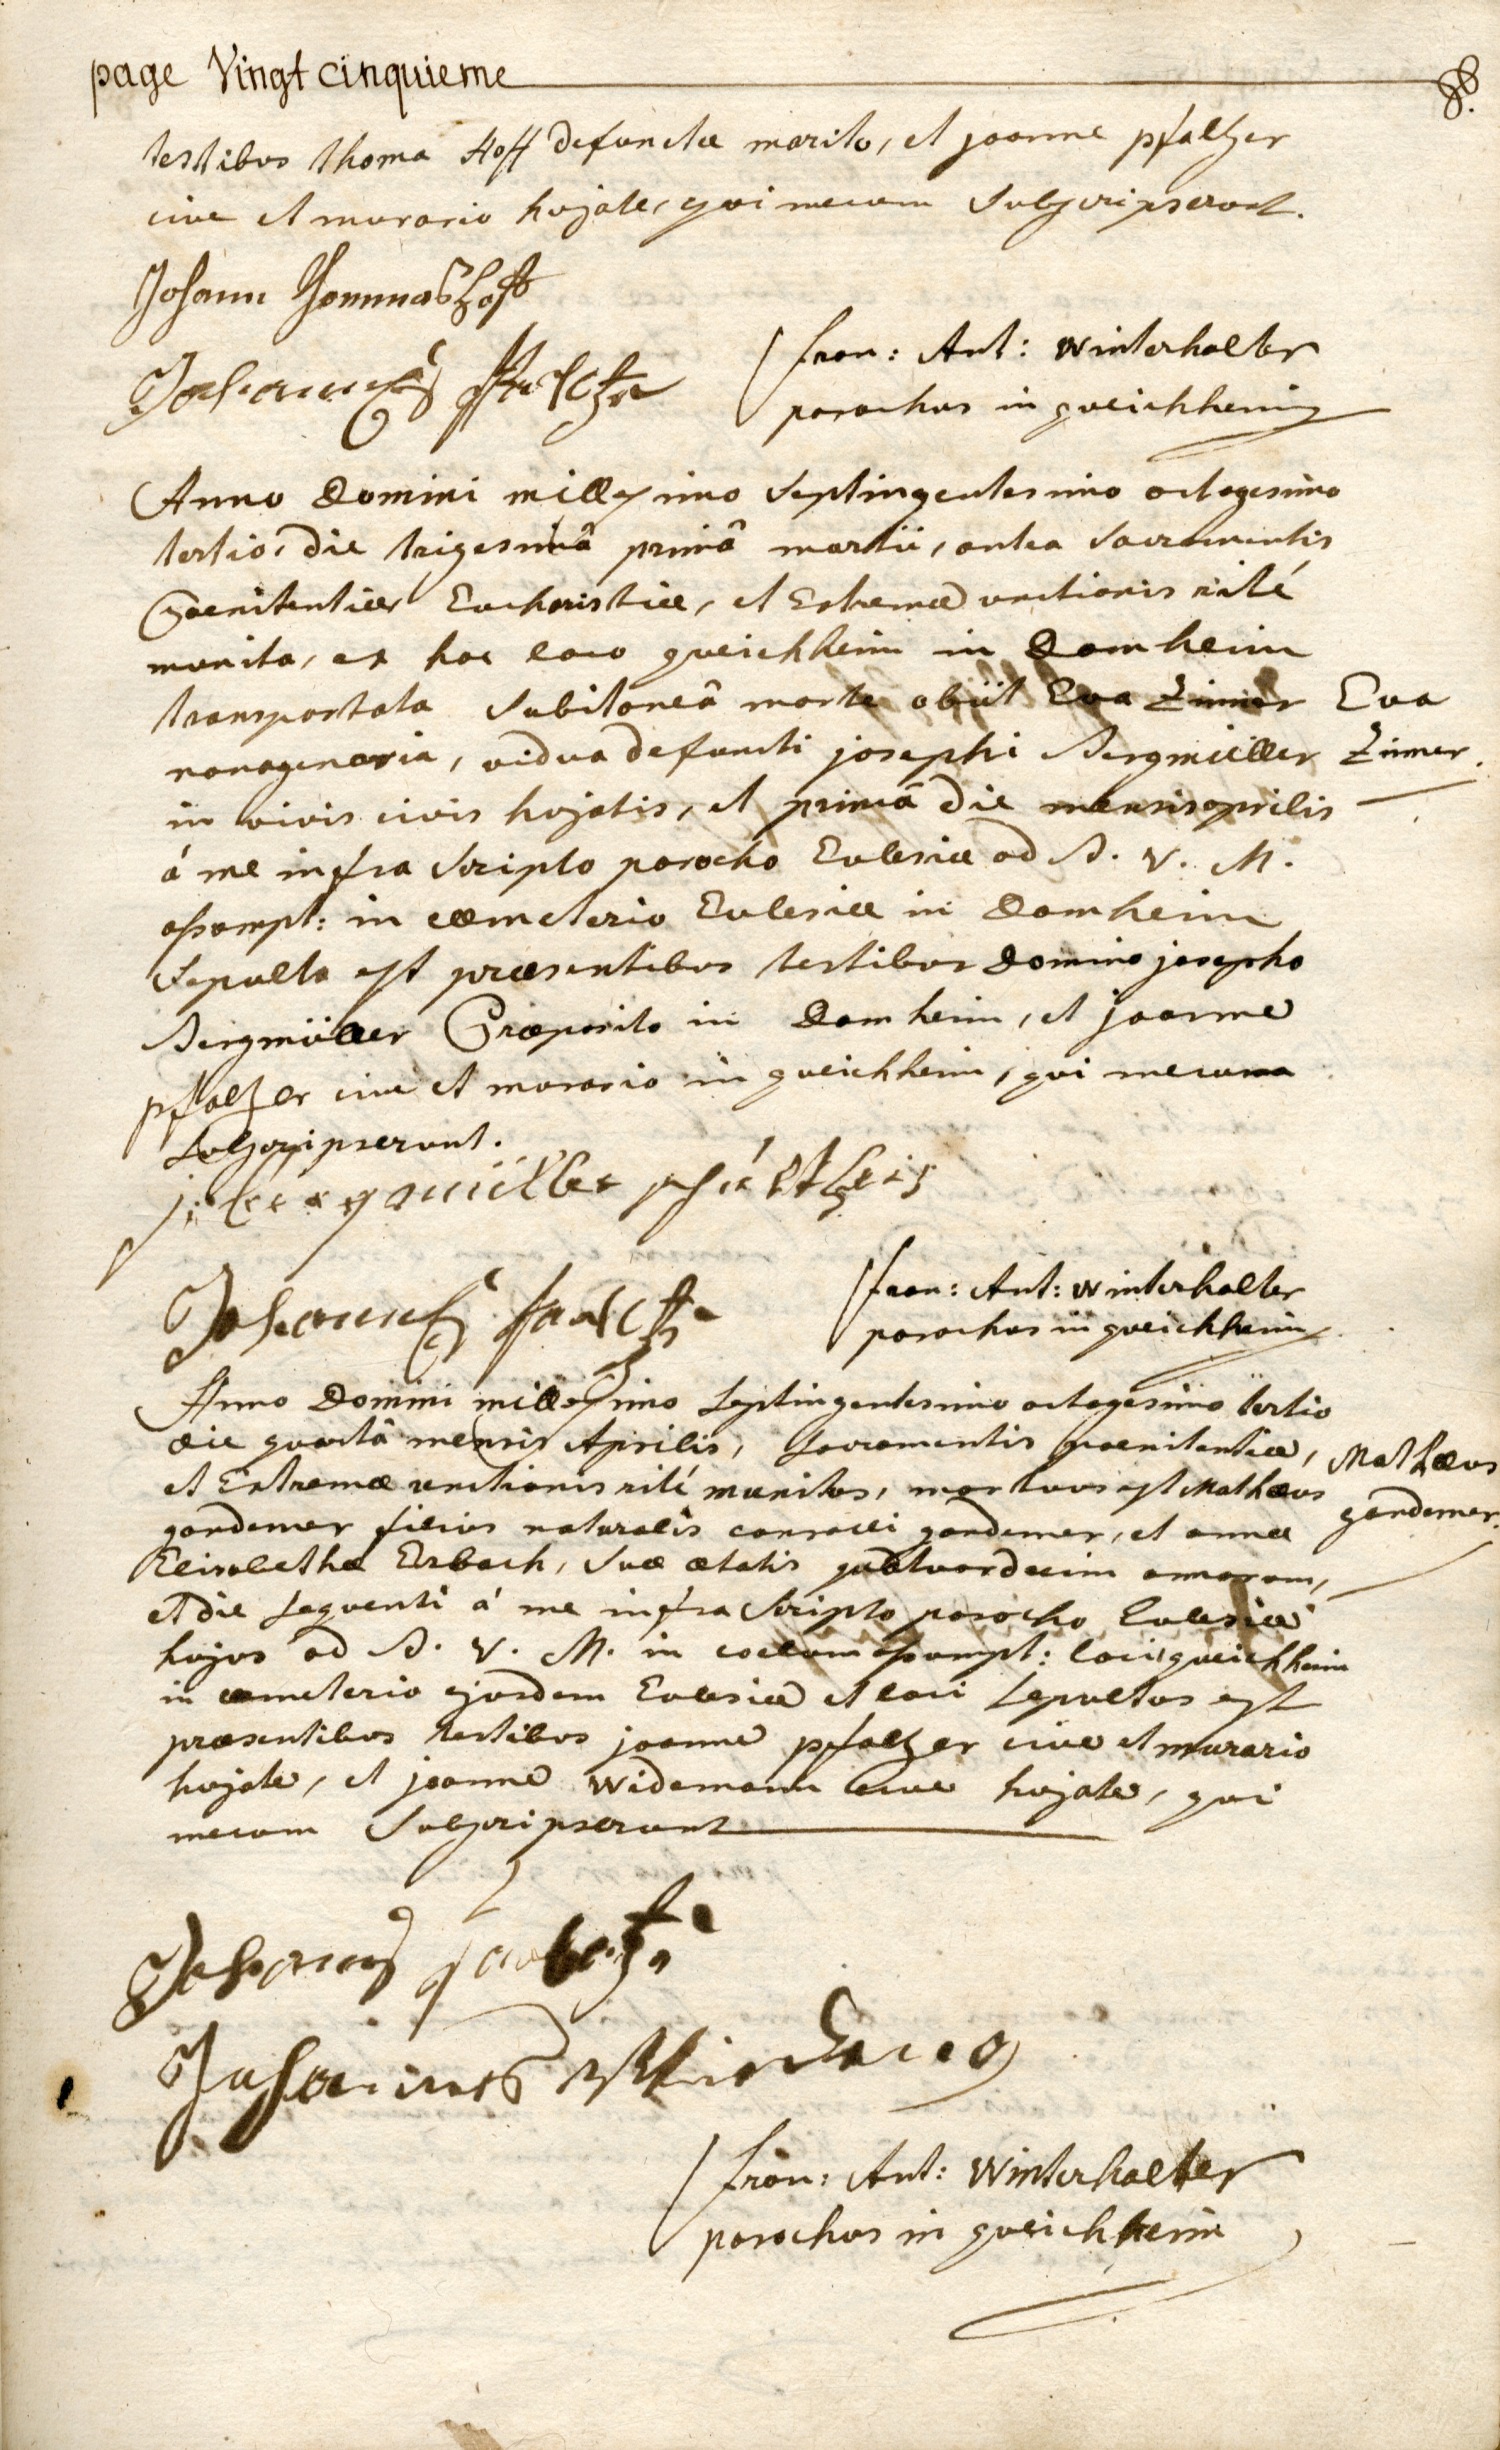 page Vingtcinquieme
testibus thoma Hoff defunctae marito, et joanne pfaltzer
cive et murario hujate, qui mecum subscripserunt.
Johann Thommas Hoff
Johannes Pfaltzer
fran: Ant: Winterhalter
parochus in queichheim
Anno Domini millesimo Septingentesimo octogesimo
tertio, die trigesimâ primâ martii, antea Sacramentis
Poenitentiae, Eucharistiae, et Extremae unctionis rité
munita, ex hoc loco queichheim in Damheim
transportata subitaneâ morte obiit Eva Zinner
Eva
nonagenaria, vidua defuncti josephi Bergmüller
Zinner.
in vivis civis hujatis, et primâ die mensis aprilis
á me infra scripto parocho Eclesiae ad B. V. M.
assumpt: in coemeterio Eclesiae in Damheim
Sepulta est praesentibus testibus Domino josepho
Bergmüller Praeposito in Damheim, et joanne
pfaltzer cive et murario in queichheim, qui mecum
subscripserunt.
j: bergmüller schultheis
Johannes Pfaltzer
fran: Ant: Winterhalter
parochus in queichheim
Anno Domini millesimo Septingentesimo octogesimo tertio
die quartâ mensis Aprilis, Sacramentis poenitentiae,
Mathaeus
et Extremae unctionis rité munitus, mortuus est Mathaeus
gandemer.
gandemer filius naturalis conradi gandemer, et annae
Elisabethae Erbach, suae aetatis quatuordecim annorum,
et die sequenti á me infra scripto parocho Eclesiae
hujus ad B. V. M. in coelum assumpt: loci queichheim
in coemeterio ejusdem Eclesiae et loci Sepultus est
praesentibus testibus joanne pfaltzer cive et murario
hujate, et joanne Widemann cive hujate, qui
mecum subscripserunt
Johannes
Johannes
fran: Ant: Winterhalter
parochus in queichheim